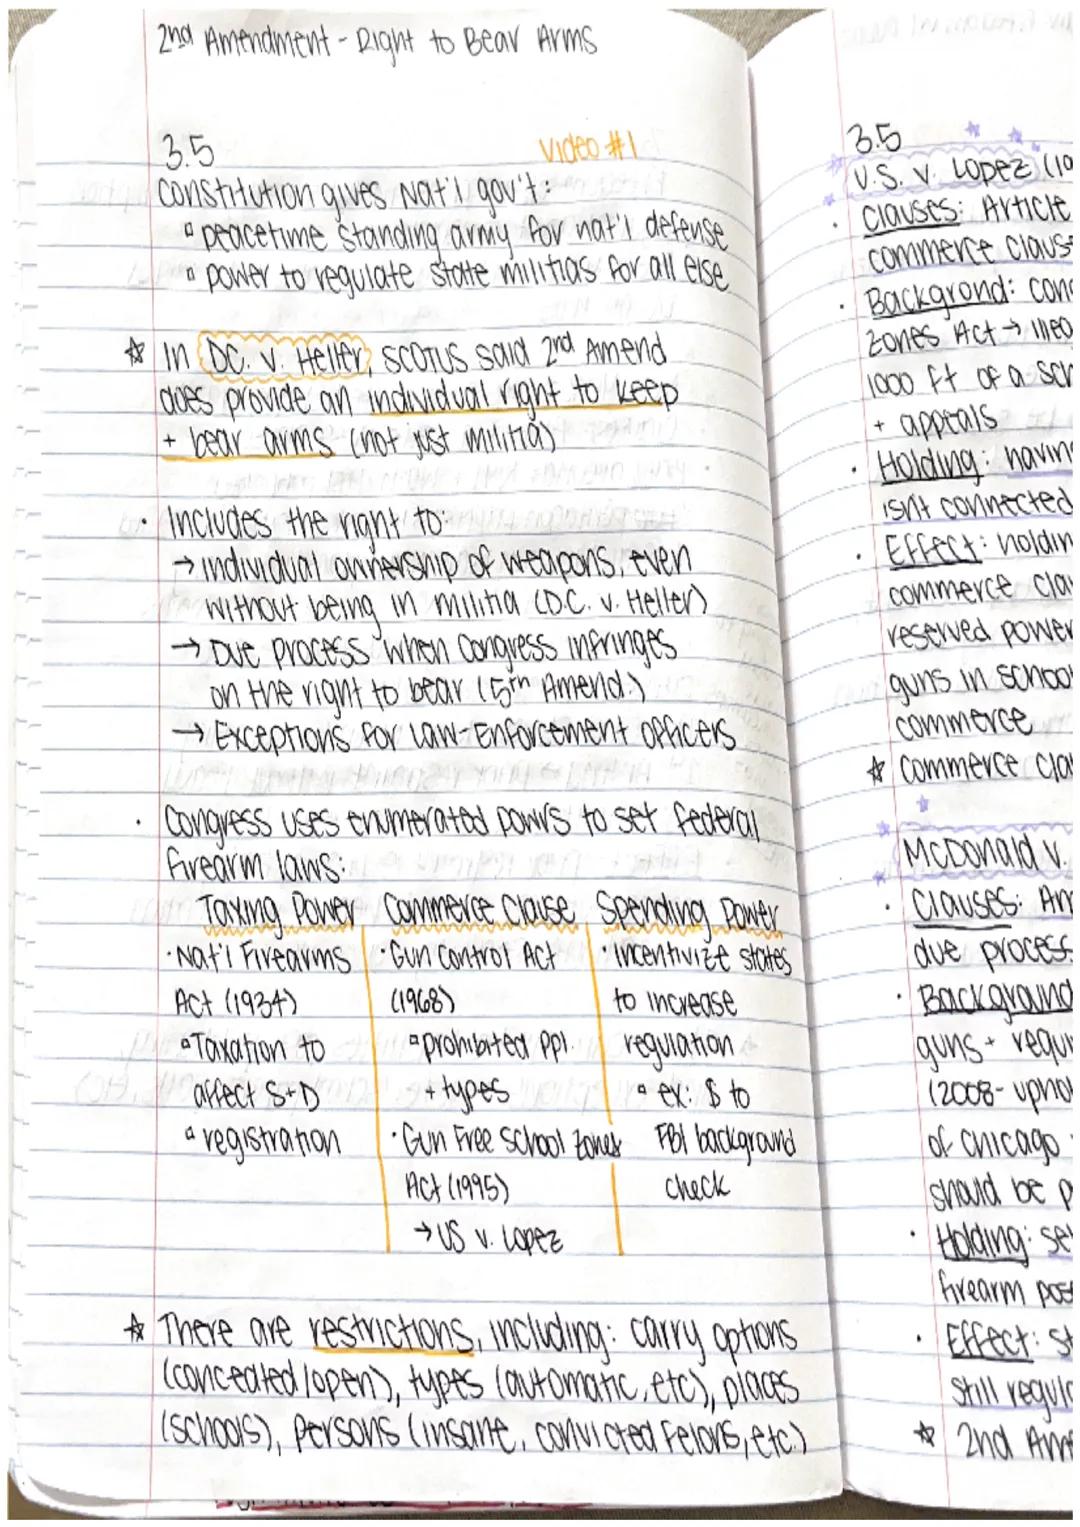 2nd Amendment - Right to Bear Arms
3.5 Video #1
Constitution gives Nat'l gov't:
▫ peacetime standing army for nat'l defense
▫ power to regulate state militias for all else
☆ In D.C. v. Heller, SCOTUS said 2nd Amend
does provide an individual right to keep
+ bear arms (not just militia)
· Includes the right to:
→ individual ownership of weapons, even
without being in militia (D.C. v. Heller)
→ Due process when Congress infringes
on the right to bear (5th Amend.)
→ Exceptions for Law-Enforcement officers
· Congress uses enumerated powrs to set federal
firearm laws:
Taxing Power Commerce Clause Spending power
· Nat'l Firearms · Gun Control Act · Incentivize states
Act (1934) (1968) to increase
▫ Taxation to ▫ prohibited ppl. regulation
affect S+D + types ▫ ex: $ to
▫ registration · Gun Free School Zones FBI background
Act (1995) check
→ US v. Lopez
☆ There are restrictions, including: carry options
(concealed/open), types (automatic, etc), places
(schools), persons (insane, convicted felons, etc.)
3.5
U.S. v. Lopez (19
· Clauses: Article
commerce claus
· Backgrond: con
Zones Act → illeg
1000 ft of a sch
+ appeals
· Holding: havin
isn't connected
· Effect: holdin
commerce cla
reserved power
guns in schoo
commerce
☆ commerce cla
McDonald v.
· Clauses: Am
due process
· Background
guns + requi
(2008- upho
of Chicago
should be p
· Holding: se
firearm pos
· Effect: st
still regula
☆ 2nd Ame